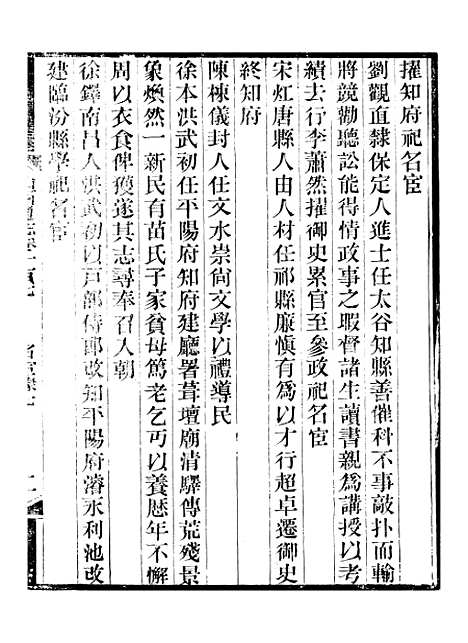 擢知府祀名宦
劉觀直隸保定人進士任太谷知縣善催科不事敲扑而輸
將競勸聽訟能得情政事之暇督諸生讀書親爲講授以考
績去行李蕭然擢御史累官至參政祀名宦
宋灴唐縣人由人材任祁縣廉愼有爲以才行超卓遷御史
終知府
陳棟儀封人任文水崇尙文學以禮導民
徐本洪武初任平陽府知府建廳署葺壇廟清驛傳荒殘景
象煥然一新民有苗氏子家貧母篤老乞丐以養歷年不懈
周以衣食俾獲遂其志尋奉召入朝
徐鐸南昌人洪武初以戸部侍郞改知平陽府濬永利池改
建臨汾縣學祀名宦